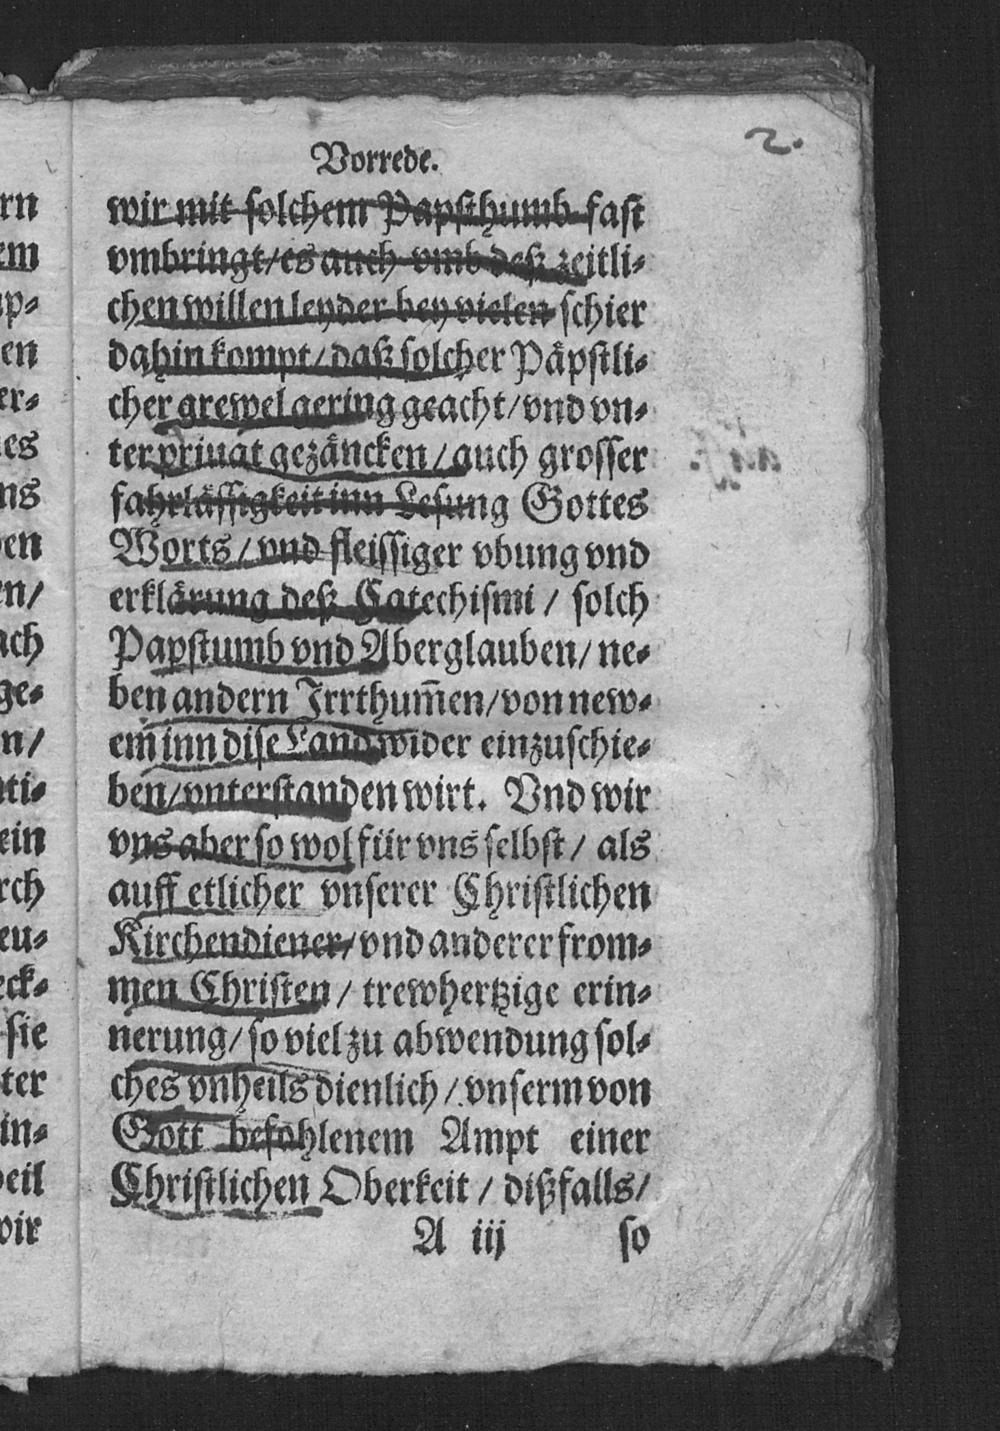 2.
Vorrede.
wir mit solchem Papsthumb fast
vmbringt/es auch vmb deß zeitli-
chen willen leyder bey vielen schier
dahin kompt/daß solcher Päpstli-
cher grewel gering geacht/vnd vn-
ter priuat gezäncken/auch grosser
fahrlässigkeit inn Lesung Gottes
Worts/vnd fleissiger vbung vnd
erklärung deß Catechismi/ solch
Papstumb vnd Aberglauben/ne-
ben andern Irrthum̄en/von new-
em inn dise Land wider einzuschie-
ben/vnterstanden wirt. Vnd wir
vns aber so wol für vns selbst/ als
auff etlicher vnserer Christlichen
Kirchendiener/vnd anderer from-
men Christen/ trewhertzige erin-
nerung/so viel zu abwendung sol-
ches vnheils dienlich/vnserm von
Gott befohlenem Ampt einer
Christlichen Oberkeit/ dißfalls/
A iij so
rn
em
ap-
en
er-
es
ns
en
en/
ach
ge-
n/
ti-
ein
rch
eu-
eck-
sie
ter
in-
eil
wir